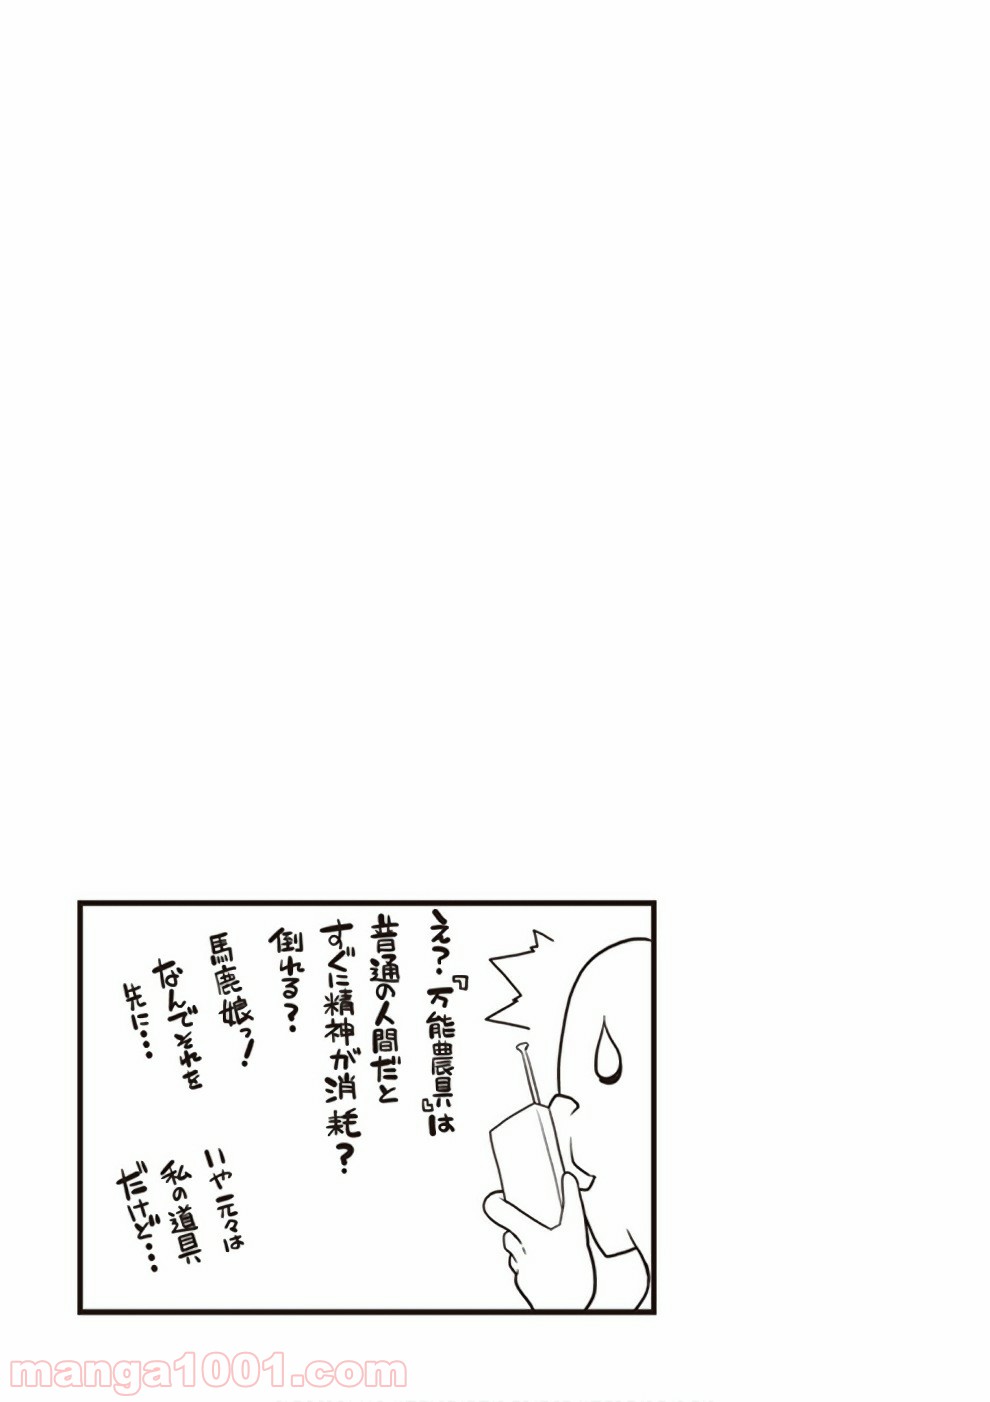 え?『万能農具』は
普通の人間だと
すぐに精神が消耗?
倒れる?
馬鹿娘っ!
なんでそれを
先に・・・
いや元々は
私の道具
だけど・・・
manga1001.com